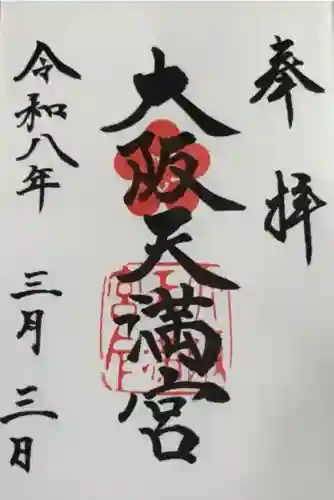 奉拝
大阪天満宮
令和八年
三月三日